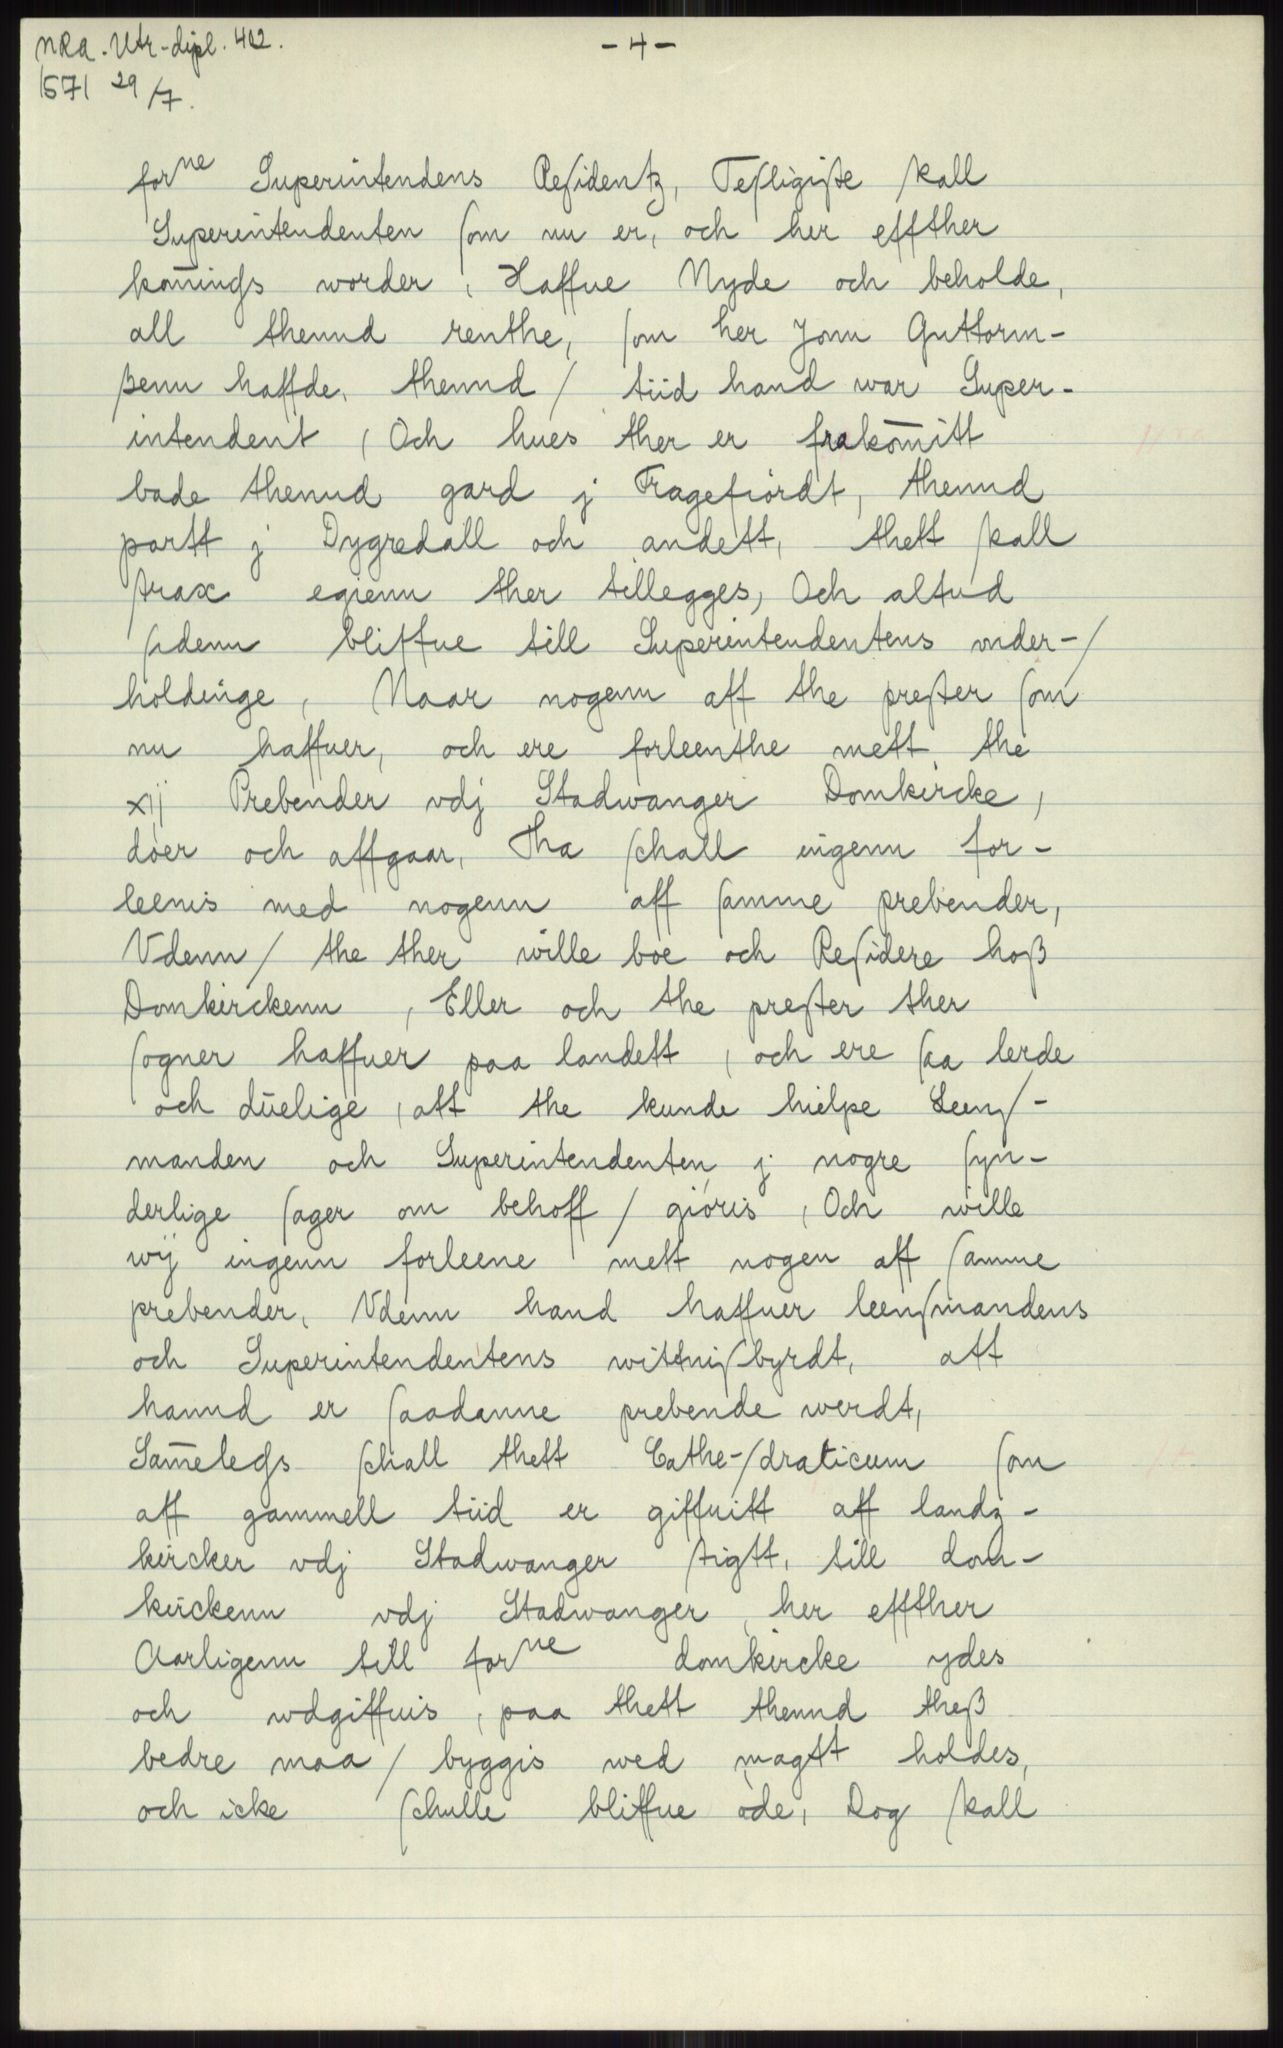 NRA. Utr-dipl. 402.
- 4 -
1571 29/7.
forne Superintendens Resſidentz, Tesſligiſte ſkall
Superintendenten ſom nu er, och her effther
kom̅ings worder, Haffue Nyde och beholde,
all thennd renthe, ſom her Jonn Guttorm-
ßenn haffde, thennd / tiid hand war Super-
intendent, Och hues ther er frakom̅itt
bade thennd gard j Fragefiórdt, thennd
partt j Dygredall och andett, thett ſkall
ſtrax egienn ther tillegges, Och altiid
ſidenn bliffue till Superintendentens vnder-/
holdinge, Naar nogenn aff the preſter ſom
nu haffuer, och ere forleenthe mett the
xij Prebender vdj Stadwanger Domkircke,
dóer och affgaar, Tha ſchall ingenn for-
leenis med nogenn aff ſamme prebender,
Vdenn / the ther wille boe och Reſidere hoß
Domkirckenn, Eller och the preſter ther
ſogner haffuer paa landett, och ere ſaa lerde
och düelige, att the kunde hielpe Leenſ-
manden och Superintendenten j nogre ſyn-
derlige ſager om behoff / gióris, Och wille
wij ingenn forleene mett nogen aff ſamme
prebender, Vdenn hand haffuer leenſmandens
och Superintendentens wittniſbyrdt, att
hannd er ſaadanne prebende werdt,
Sam̅elegs ſchall thett Cathe-/draticum ſom
aff gammell tiid er giffuitt aff landz-
kircker vdj Stadwanger ſtigtt, till dom-
kirckenn vdj Stadwanger, her effther
Aarligenn till forne domkircke ydes
och wdgiffuis, paa thett thennd theß
bedre maa / byggis wed magtt holdes,
och icke ſchulle bliffue óde, Dog ſkall